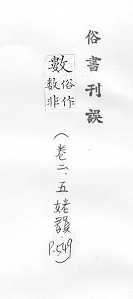 俗書刊誤
數俗作
数非
(卷二、五姥韻
P.549)